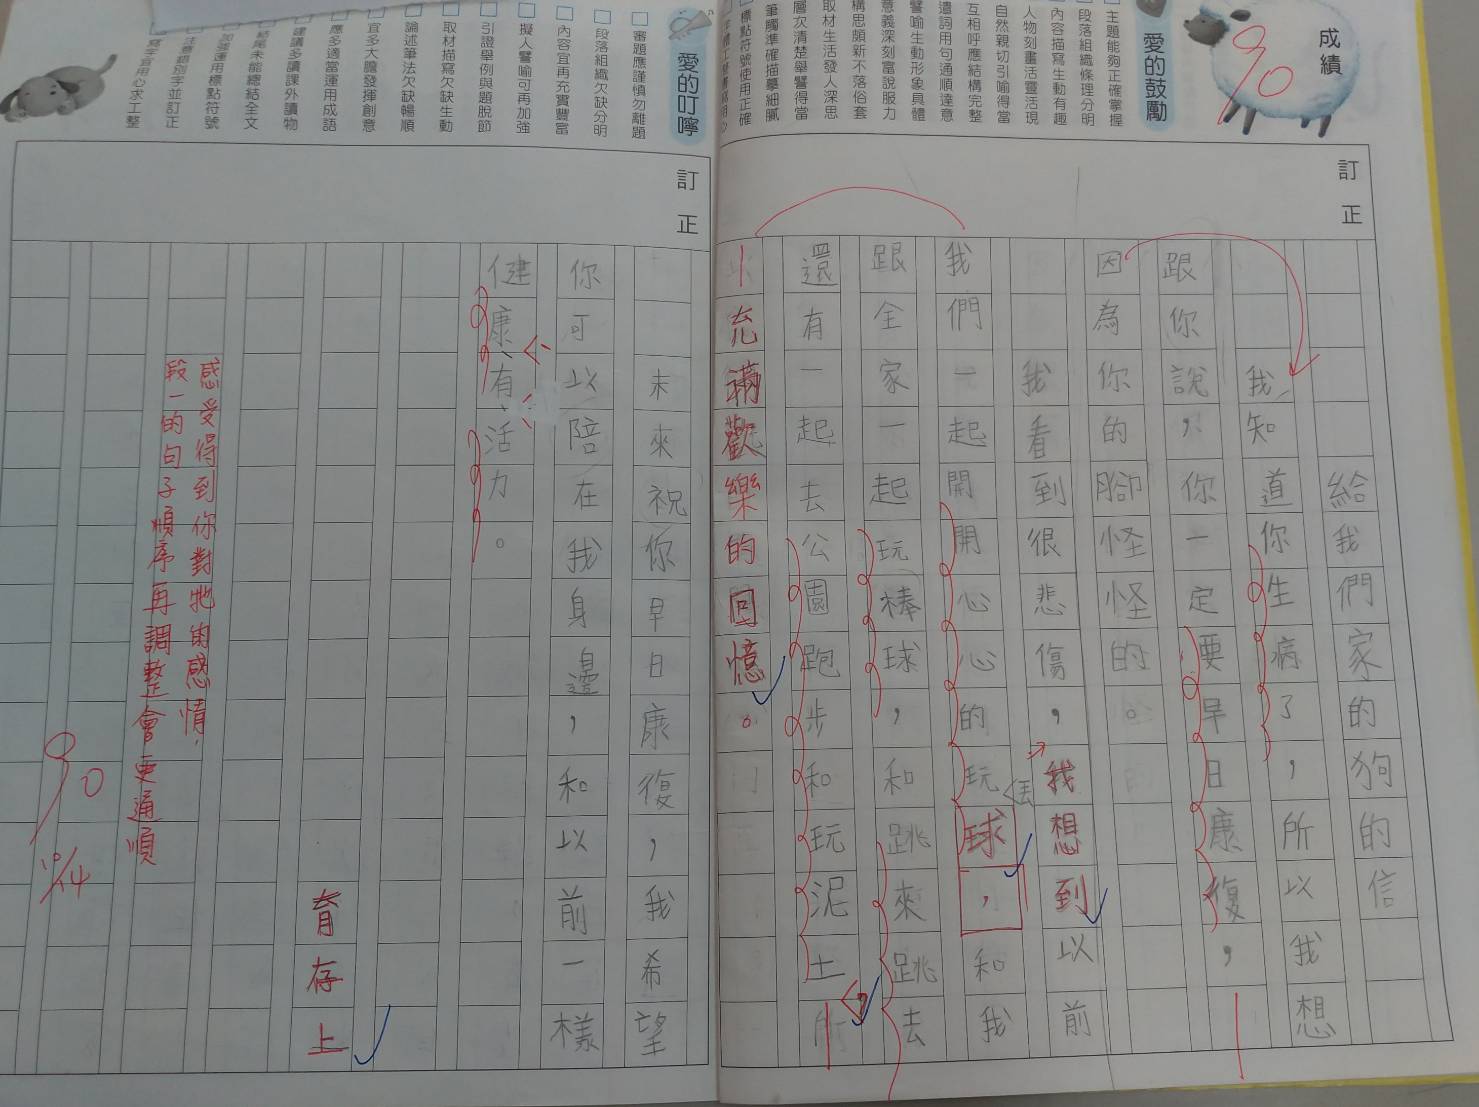 成績
90
愛的鼓勵
主題能夠正確掌握
段落組織條理分明
內容描寫生動有趣
人物刻畫活靈活現
自然親切引喻得當
互相呼應結構完整
遣詞用句通順達意
譬喻生動形象具體
意義深刻富說服力
構思頗新不落俗套
取材生活發人深思
層次清楚舉譬得當
筆觸準確描摹細膩
標點符號使用正確
訂正
給我們家的狗的信
我知道你生病了，所以我想
跟你說，你一定要早日康復，
因為你的腳怪怪的。
我看到很悲傷，我想到以前
我們一起開開心心的玩球，和我
丟
跟全家一起玩棒球，和跳來跳去
還有一起去公園跑步和玩泥土，
充滿歡樂的回憶。
愛的叮嚀
審題應謹慎勿離題
段落組織欠缺分明
內容宜再充實豐富
擬人譬喻可再加強
引證舉例與題脫節
取材描寫欠缺生動
論述筆法欠缺暢順
宜多大膽發揮創意
應多適當運用成語
建議多讀課外讀物
結尾未能總結全文
加強運用標點符號
注意錯別字並訂正
寫字宜用心求工整
訂正
未來祝你早日康復，我希望
你可以陪在我身邊，和以前一樣
健康、有活力。
育存上
感受得到你對牠的感情，
段一的句子順序再調整會更通順
90
10/14